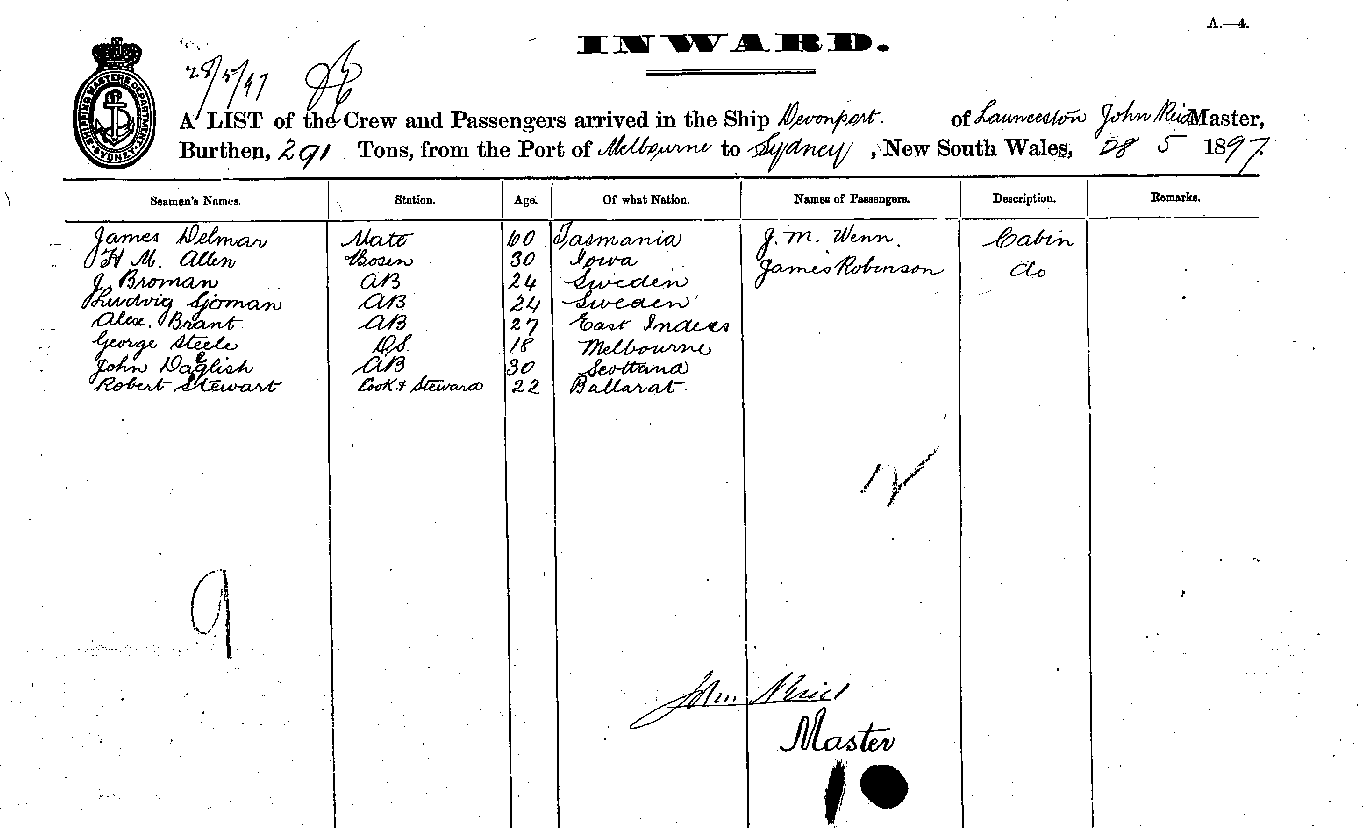 A.—4.
INWARD.
28/5/97
SHIPPING MASTERS DEPARTMENT SYDNEY
A LIST of the Crew and Passengers arrived in the Ship Devonport. of Launceston John Reid Master,
Burthen, 291 Tons, from the Port of Melbourne to Sydney, New South Wales, 28 5 1897.
Seamen's Names. Station. Age. Of what Nation. Names of Passengers. Description. Remarks.
James Delmar Mate 60 Tasmania J. M. Wenn. Cabin
H M. Allen Bosen 30 Iowa James Robinson do
J Broman AB 24 Sweden
Ludvig Sjoman AB 24 Sweden
Alex. Brant AB 27 East Indies
George Steele O.S. 18 Melbourne
John Daglish AB 30 Scotland
Robert Stewart Cook & Steward 22 Ballarat
2
9
John Reid
Master